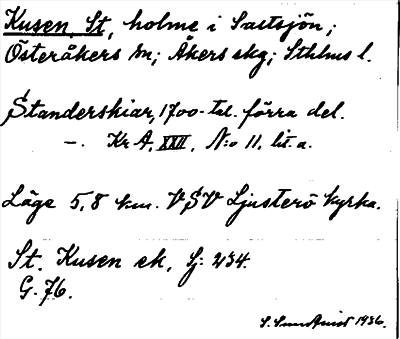 Kusen, St, holme i Saltsjön;
Österåkers sn; Åkers skg; Sthlms l.
Standerskiar, 1700-tal. förra del.
—. Kr A, XXII, N:o 11, lit. a.
Läge 5,8 km. VSV Ljusterö kyrka.
St. Kusen ek, Sj: 234.
G. 76.
1936.